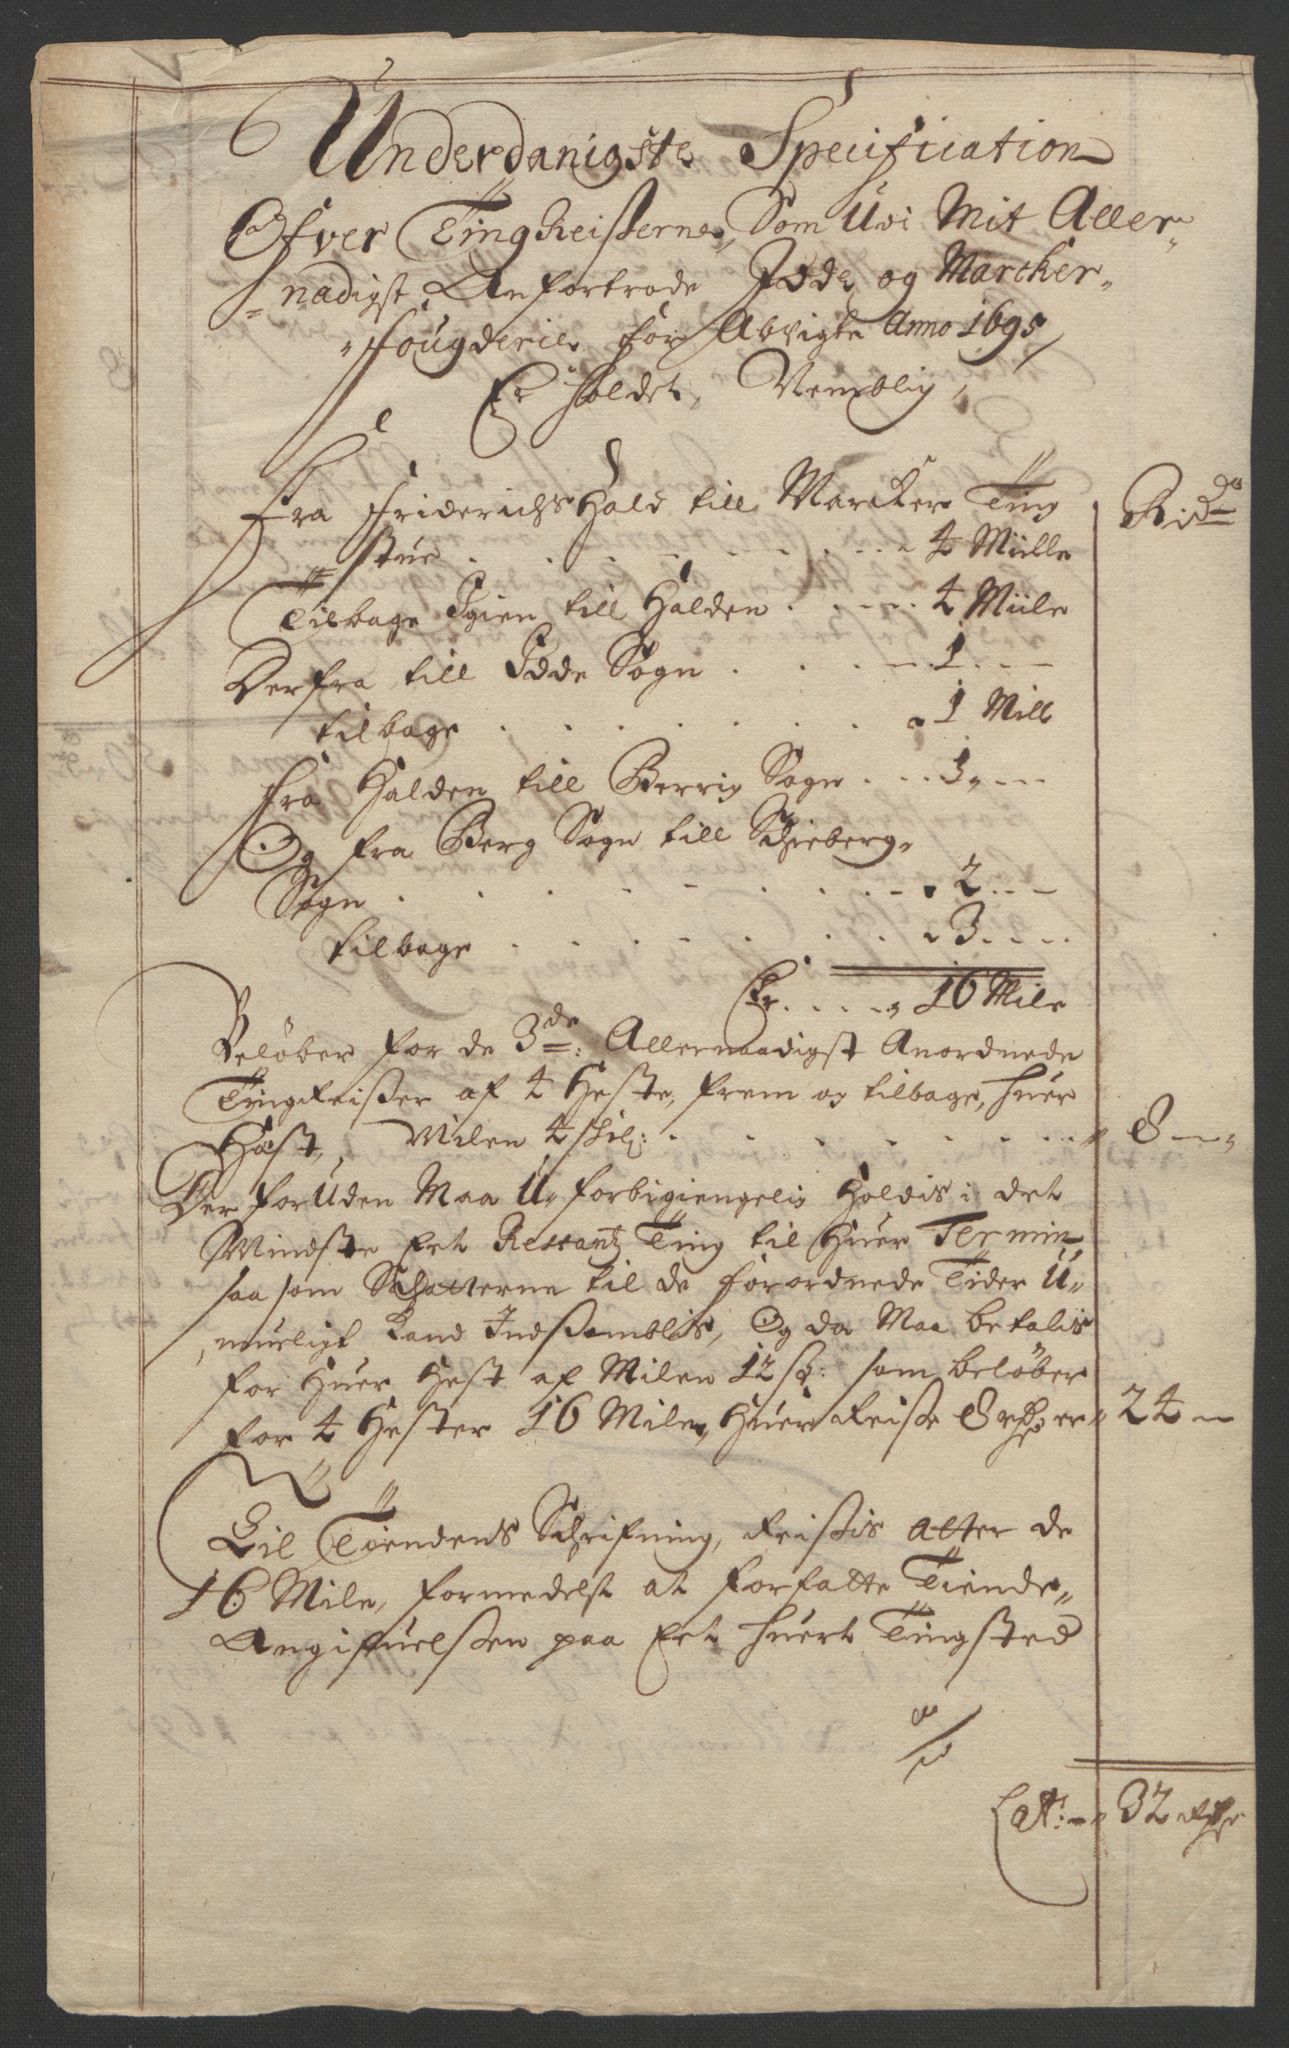 Underdanigste Specification
Ofver TingReiserne, Som Udi Mit Aller„
„nadigst Anfortrode Idde og Marcker„
„fougderie for Afvigte Anno 1695
Er holdet, Nemblig,
Fra Friderichs Hald till Marcker Ting
stue . . . . . . . . 4 Miille
Tilbage Igien till Halden . . . . 4 Miile
Derfra till Idde Sogn . . . . 1 . . —
tilbage . . . . . . . . 1 Mill
fra Halden till Berrig Sogn . . . 1 „ — —
Og fra Berg Sogn till Schieberg„
Sogn . . . . . . . . 2 . . —
tilbage . . . . . . . . 3 . . . .
Er . . . . „ 16 Mile
Beløber for de 3de: Allernaadigst Anordnede
TingReiser af 4 Heste, frem og tilbage, huer
Hæst, Milen 4 skil: . . . . . . . . „ 8 — „
Der foruden Maa U„forbigiengelig Holdis i det
Mindste Eet Restantz Ting til Huer Termin,
saa som Schatterne til de forordnede Tider U„
„muligt Kand Indsamblis, Og da Maa betalis
for Huer Hest af Milen 12 sk: som beløber
for 4 Hester 16 Mile, Huer Reise 8 rdr er „ 24 —
Til Tiendens Schrifning, Reisis atter de
16 Mile, formedelst at forfatte Tiende„
Angifuelsen paa Eet huert Tingsted
Lat: — „ 32 Rdr